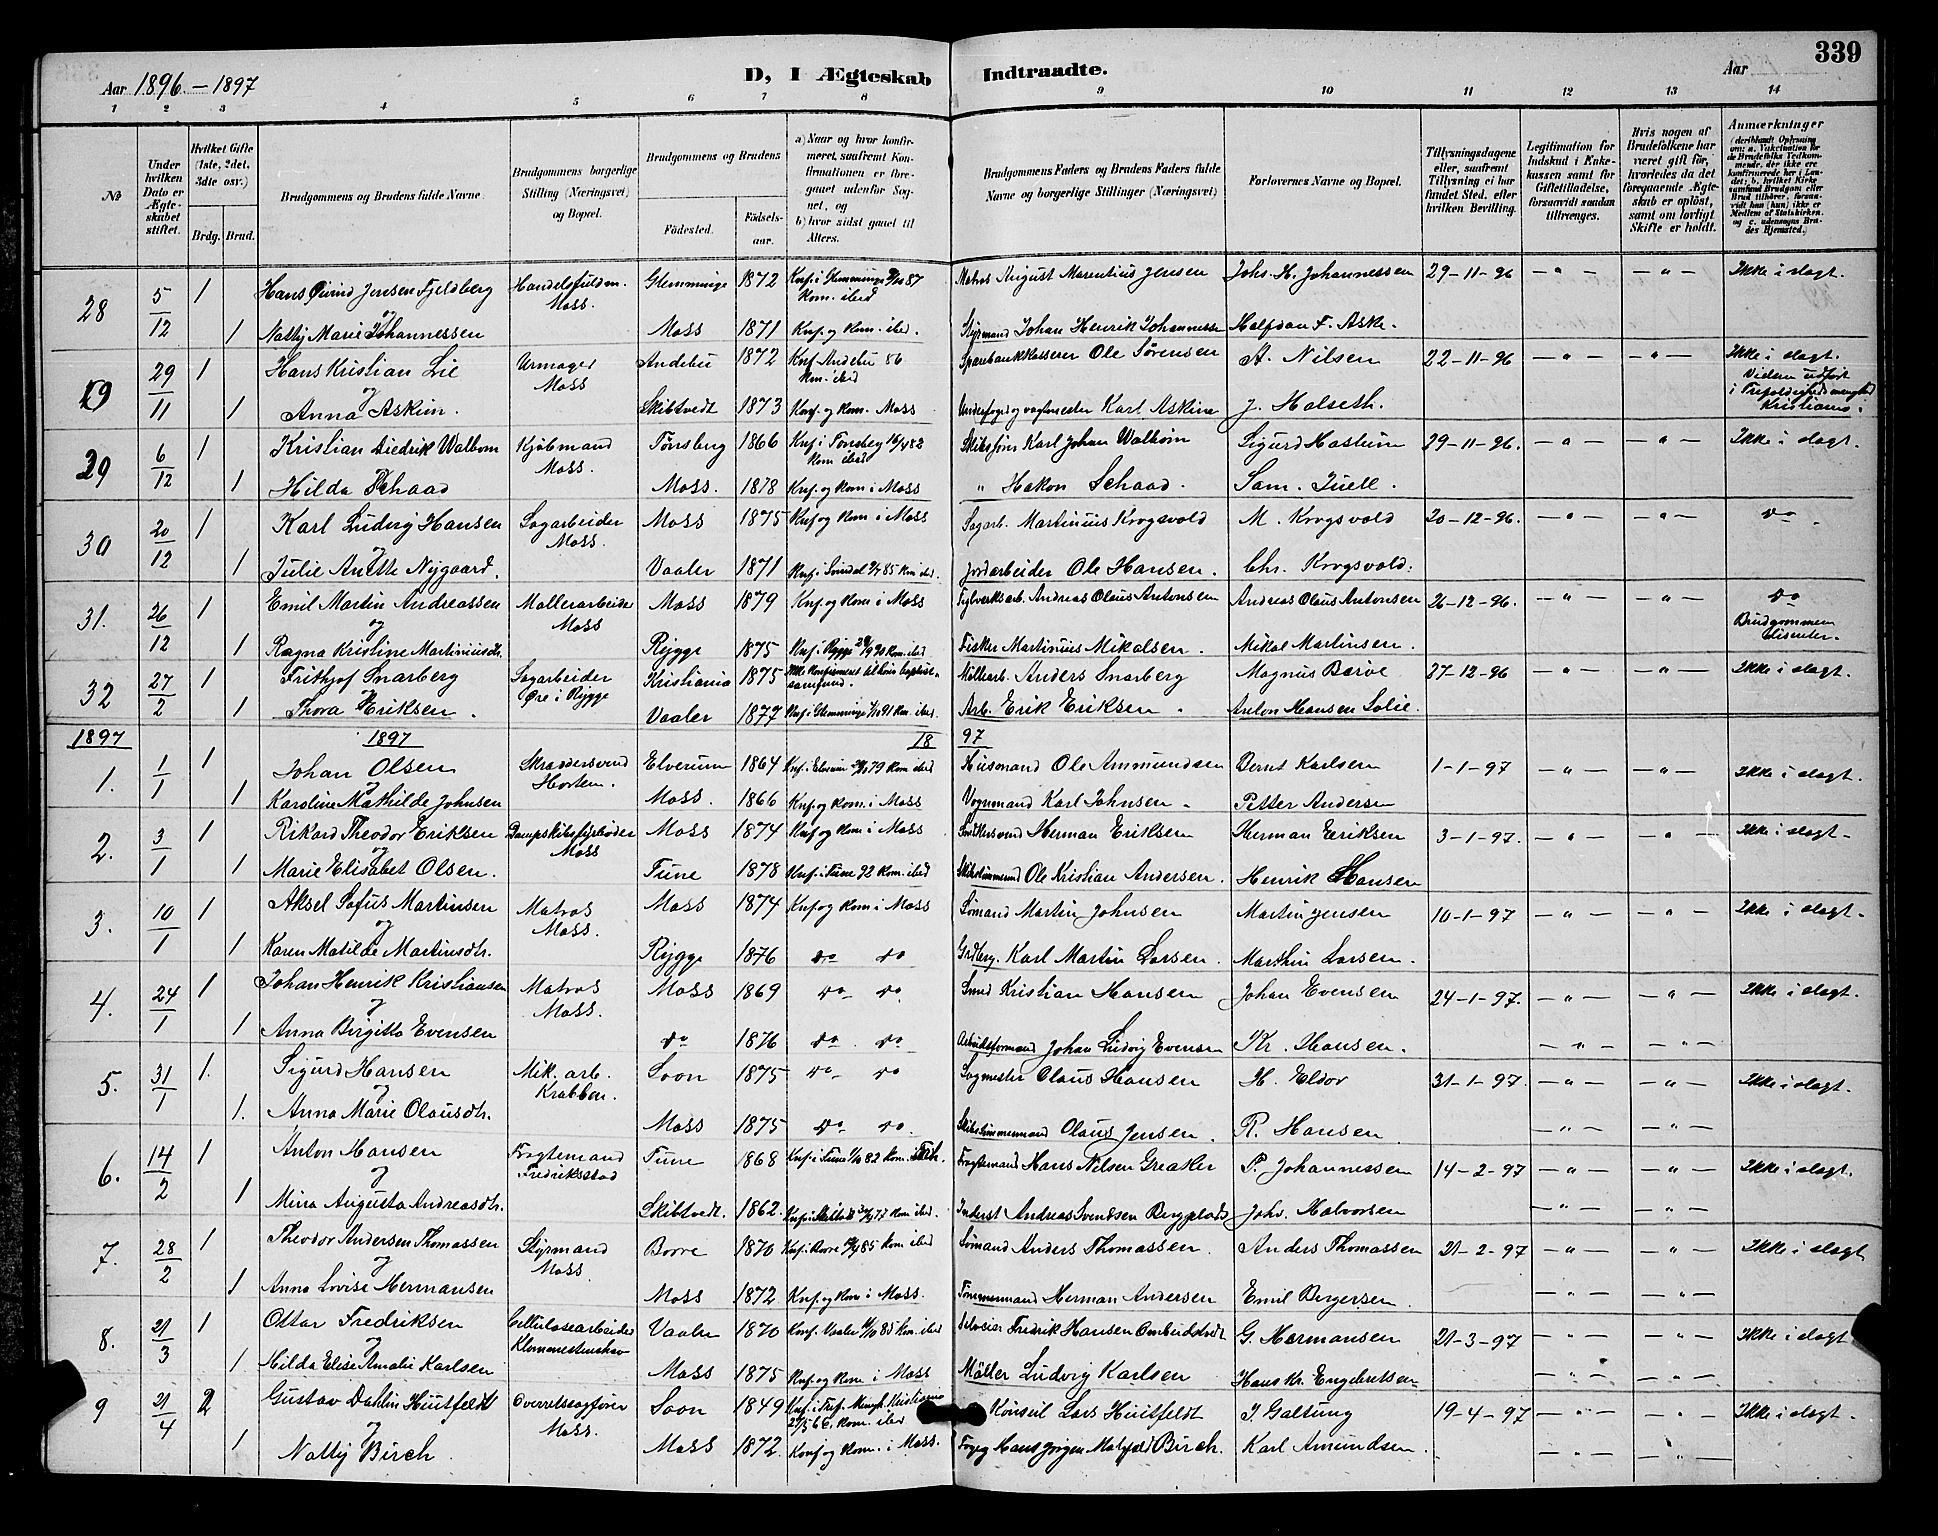 339
Aar 1896. - 1897 D, I Ægteskab Indtraadte. Aar
1 2 3 4 5 6 7 8 9 10 11 12 13 14
No
Under hvilken Dato er Ægteskabet stiftet.
Hvilket Gifte (1ste, 2det, 3die osv.)
Brdg. Brud.
Brudgommens og Brudens fulde Navne.
Brudgommens borgerlige Stilling (Næringsvei) og Bopæl.
Brudgommens og Brudens
Fødested. Fødselsaar.
a) Naar og hvor konfirmeret, saafremt Konfirmationen er foregaaet udenfor Sognet, og
b) hvor sidst gaaet til Alters.
Brudgommens Faders og Brudens Faders fulde Navne og borgerlige Stillinger (Næringsvei)
Forlovernes Navne og Bopæl.
Tillysningsdagene eller, saafremt Tillysning ei har fundet Sted, efter hvilken Bevilling.
Legitimation for Indskud i Enkekassen samt for Giftetilladelse, forsaavidt saadan tiltrænges.
Hvis nogen af Brudefolkene har været gift før, hvorledes da det foregaaende Ægteskab er opløst, samt om lovligt Skifte er holdt.
Anmærkninger
28 5/12 1 Hans Øivind Jensen Fjeldberg Handelsfuldm. Moss. Glemminge 1872 Knf. i Glemminge 87 Kom. ibid August Marentius Jensen Johs. H. Johannessen 29-11-96 - " - - " - Ikke i slægt.
og
1 Nathy Marie Johannessen Moss 1871 Knf. og Kom. ibd. Styrmand Johan Henrik Johannessen Halfdan F. Aske.
29 29/11 1 Hans Kristian Lie Urmager Moss Andebu 1872 Knf Andebu 86 Kom. ibid Sparebankkasserer Ole Sørensen A. Nilsen 22-11-96 - " - - " - Ikke i slægt.
og
1 Anna Askim. Skibtvedt 1873 Knf. og Kom. Moss Karl Askim J. Halseth. Kristiania.
29 6/12 1 Kristian Diedrik Walbom Kjøbmand Moss. Tønsberg 1866 Knf. i Tønsberg 82 Kom ibid Karl Johan Walbom Sigurd Hastum 29-11-96. - " - - " - Ikke i slægt.
1 Hilda Schaad Moss. 1878 Knf. og Kom i Moss " Hakon Schaad. Sam. Juell.
30 20/12 1 Karl Ludvig Hansen Sagarbeider Moss. Moss 1875 Knf og Kom i Moss Sagarb. Martinius Krogsvold M. Krogsvold 20-12-96. - " - - " - do
og
1 Julie Anette Nygaard. Vaaler 1871 85 Kom ibid. Jordarbeider Ole Hansen. Chr. Krogsvold.
31. 26/12 1 Emil Martin Andreassen Møllerarbeider Moss Moss 1879 Knf og Kom i Moss Andreas Olaus Antonsen Andreas Olaus Antonsen 26-12-96. - " - - " - do
og
1 Ragna Kristine Martiniusdtr. Rygge 1875 Knf. i Rygge 90 Kom. ibid Fisker Martinius Mikalsen. Mikal Martinsen. Brudgommen disenter.
32 27/2 1 Frithjof Snarberg Sagarbeider Øre i Rygge Kristiania 1875 Møllearb. Anders Snarberg Magnus Barve 27-12-96 - " - - " - Ikke i slægt.
1 Thora Eriksen. Vaaler 1877 Knf. i Glemminge 91 Kom. ibid. Arb. Erik Eriksen. Anton Hansen Solie.
1897 1897 18 97
1. 1/1 1 Johan Olsen Skræddersvend Horten. Elverum 1864 Knf. i Elverum 79 Kom ibid Husmand Ole Ammundsen Bernt Karlsen 1-1-97 - " - - " - Ikke i slægt.
og
1 Karoline Mathilde Johnsen Moss. 1866 Knf. og Kom. i Moss Vognmand Karl Johnsen. Petter Andersen
2. 3/1 1 Rikard Theodor Eriksen Dampskibsfyrbøder Moss Moss 1874 Knf og Kom. i Moss Herman Eriksen Herman Eriksen 3-1-97. - " - - " - Ikke i slægt.
og
1 Marie Elisabet Olsen. Tune 1878 Knf. i Tune 92 Kom. ibid Ole Kristian Andersen. Henrik Hansen
3. 10/1 1 Aksel Sofus Martinsen Matros Moss. Moss 1874 Knf og Kom i Moss Sømand Martin Johnsen Martin Jensen 10-1-97 - " - - " - Ikke i slægt.
og
1 Karen Matilde Martinsdtr. Rygge 1876 do do Karl Martin Larsen. Marthin Larsen.
4. 24/1 1 Johan Henrik Kristiansen Matros Moss. Moss 1869 do do Smed Kristian Hansen Johan Evensen 24-1-97. - " - - " - Ikke i slægt.
og
1 Anna Birgitta Evensen do 1876 do. do Arbeidsformand Johan Ludvig Evensen Kr. Hansen. - " - - " -
5. 31/1 1. Sigurd Hansen Mek. arb. Krabben. Soon 1875 do do Sagmester Olaus Hansen H. Eldor 31-1-97. - " - - " - Ikke i slægt.
og
1. Anna Marie Olausdtr. Moss 1875 do do. Skibstømmermand Olaus Jensen. R. Hansen. - " - - " -
6. 14/2 1 Anton Hansen Fragtemand Fredriksstad Tune 1868 Knf. i Tune 82 Kom. i Fragtemand Hans Nilsen Greaker P. Johannessen 14-2-97 - " - - " - Ikke i slægt.
og
1 Mina Augusta Andreasdtr. Skibtvedt. 1862. 77 Kom. ibid. Inderst Andreas Svendsen Bergplads Johs. Halvorsen - " - - " -
7. 28/2 1 Theodor Andersen Thomassen Styrmand Moss. Borre 1870 Knf. i Borre 85 Kom ibid Sømand Anders Thomassen. Anders Thomassen 21-2-97 - " - - " - Ikke i slægt
og
1 Anna Lovise Hermansen Moss 1872 Knf. og Kom i Moss. Tømmermand Herman Andersen Emil Birgersen. - " - - " -
8. 21/3 1 Ottar Fredriksen Cellulosearbeider Vaaler 1870 Konf. Vaaler 85 Kom. ibid Fredrik Hansen G. Hermansen 21-3-97 - " - - " - Ikke i slægt
og
1 Hilda Elise Amalie Karlsen Moss 1875 Knf. og Kom. i Moss Møller Ludvig Karlsen Hans Kr. Engebretsen - " - - " -
9 21/4 2 Gustav Dahlin Huitfeldt Overretssagfører Moss. Soon 1849 Knf. i Tref. Mengh. Kristiania 66. Kom. ibid Konsul Lars Huitfeldt J. Galtung 19-4-97 - " - - " - Ikke i slægt.
og
1 Nathy Birch Moss 1872. Konf og Kom. i Moss. Birch. Karl Amundsen - " - - " -